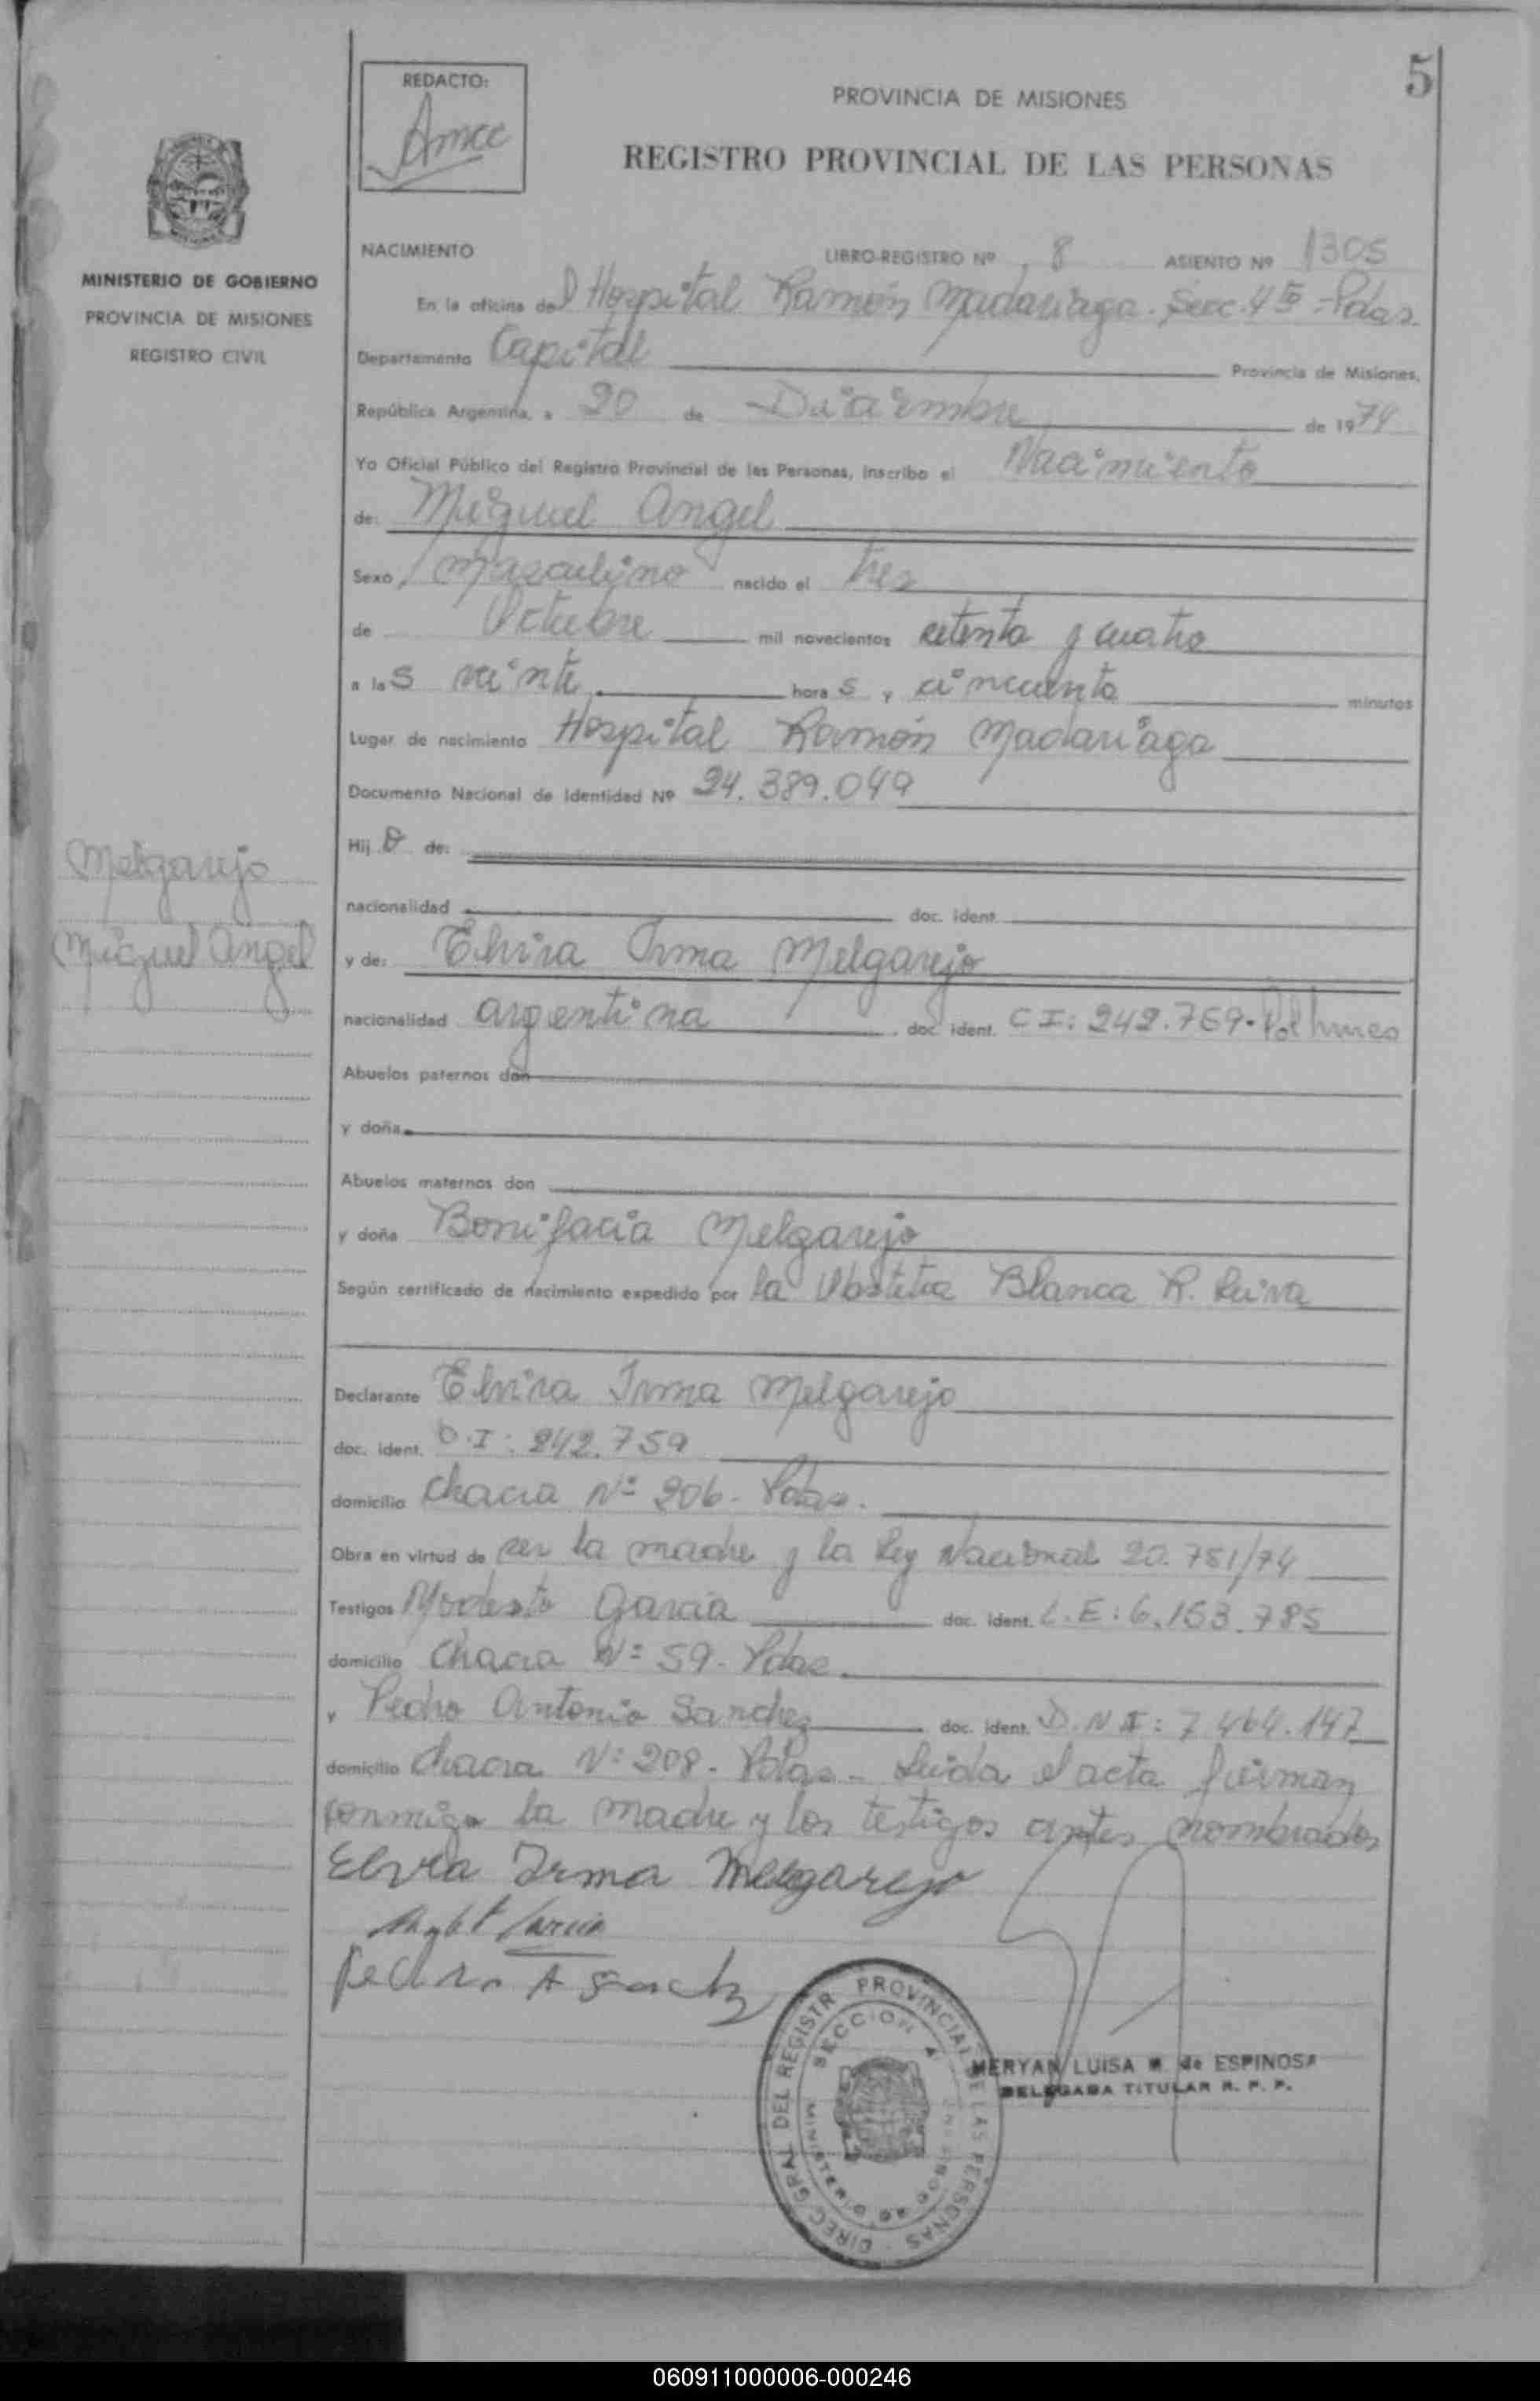 5
REDACTO:
PROVINCIA DE MISIONES
REGISTRO PROVINCIAL DE LAS PERSONAS
MINISTERIO DE GOBIERNO
PROVINCIA DE MISIONES
REGISTRO CIVIL
NACIMIENTO LIBRO-REGISTRO Nº 8 ASIENTO Nº 1305
En la oficina del Hospital Ramón Madariaga. Secc. 4ta - Pdas.
Departamento Capital Provincia de Misiones,
República Argentina, a 20 de Diciembre de 1974
Yo Oficial Público del Registro Provincial de las Personas, inscribo el Nacimiento
de: Miguel Angel
Sexo masculino nacido el tres
de Octubre mil novecientos setenta y cuatro
a las veinte horas y cincuenta minutos
Lugar de nacimiento Hospital Ramón Madariaga
Documento Nacional de Identidad Nº 24.389.049
Hijo de:
nacionalidad doc. ident.
Melgarejo
Miguel Angel
y de: Elvira Irma Melgarejo
nacionalidad argentina doc. ident. CI: 242.769. Pol
Abuelos paternos don
y doña
Abuelos maternos don
y doña Bonifacia Melgarejo
Según certificado de nacimiento expedido por la Obstetra Blanca R. Leiva
Declarante Elvira Irma Melgarejo
doc. ident. C.I: 242.759
domicilio Chacra Nº 206 - Pdas.
Obra en virtud de ser la madre y la Ley Nacional 20.751/74
Testigos Modesto Garcia doc. ident. L.E: 6.153.785
domicilio Chacra Nº 59 - Pdas.
y Pedro Antonio Sanchez doc. ident. D.N.I: 7.464.147
domicilio Chacra Nº 208 - Pdas - Leida el acta firman
conmigo la madre y los testigos antes nombrados
Elvira Irma Melgarejo
Garcia
Pedro A Sanchez
DIREC. GRAL DEL REGISTR PROVINCIAL DE LAS PERSONAS
SECCION 4
MINISTERIO DE GOBIERNO
MERYAN LUISA M. de ESPINOSA
DELEGADA TITULAR R. P. P.
060911000006-000246